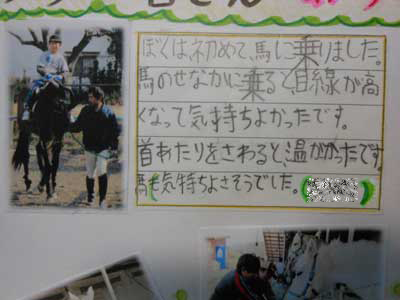 ぼくは、初めて、馬に乗りました。
馬のせなかに乗ると目線が高
くなって気持ちよかったです。
首あたりをさわると温かかったです。
馬も気持ちよさそうでした。